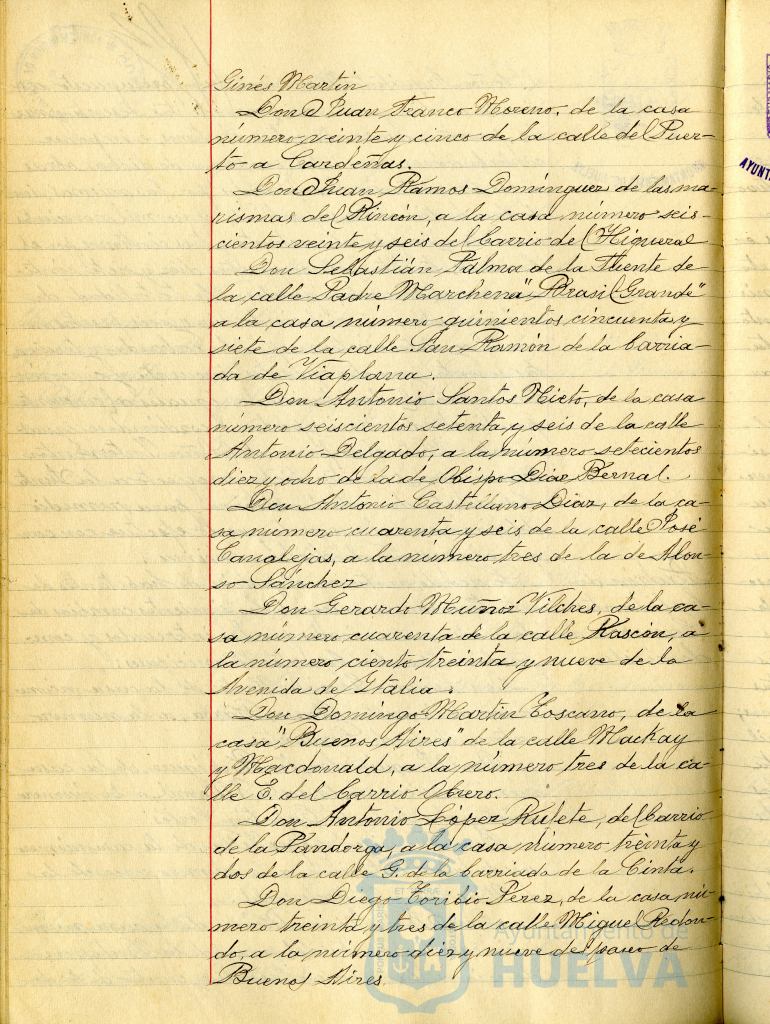 Ginés Martin
Don Juan Franco Moreno, de la casa
número veinte y cinco de la calle del Puer-
to a Cardeñas.
Don Juan Ramos Domínguez de las ma-
rismas del Rincón, a la casa número seis-
cientos veinte y seis del barrio del Higueral
Don Sebastián Palma de la Fuente de
la calle Padre Marchena "Brasil Grande"
a la casa número quinientos cincuenta y
siete de la calle San Ramón de la barria-
da de Viaplana.
Don Antonio Santos Nieto, de la casa
número seiscientos setenta y seis de la calle
Antonio Delgado, a la número setecientos
diez y ocho de la de Obispo Díaz Bernal.
Don Antonio Castellano Díaz, de la ca-
sa número cuarenta y seis de la calle José
Canalejas, a la número tres de la de Alon-
so Sánchez
Don Gerardo Muñoz Vilches, de la ca-
sa número cuarenta de la calle Rascón, a
la número ciento treinta y nueve de la
Avenida de Italia.
Don Domingo Martín Toscano, de la
casa "Buenos Aires" de la calle Mackay
y Macdonald, a la número tres de la ca-
lle E. del barrio Obrero.
Don Antonio López Rufete, del barrio
de la Pandorga, a la casa número treinta y
dos de la calle G. de la barriada de la Cinta.
Don Diego Toribio Pérez, de la casa nú-
mero treinta y tres de la calle Miguel Redon-
do, a la número diez y nueve del paseo de
Buenos Aires
Ayuntamiento de
HUELVA
AYUNT